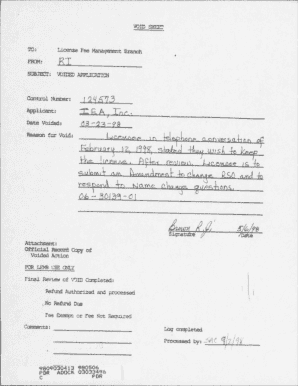 VOID SHEET
TO: License Fee Management Branch
FROM: RI
SUBJECT: VOIDED APPLICATION
Control Number: 124573
Applicant: IEA, Inc.
Date Voided: 03-23-98
Reason for Void: Licensee in telephone conversation of
February 12, 1998, stated they wish to keep
the license. After review, licensee is to
submit an Amendment to change RSO and to
respond to Name change questions.
06-30139-01
Signature Date
Attachment:
Official Record Copy of
Voided Action
FOR LFMB USE ONLY
Final Review of VOID Completed:
Refund Authorized and processed
No Refund Due
Fee Exempt or Fee Not Required
Comments: Log completed
Processed by:
9809030413 980506
PDR ADOCK 03033496
C PDR